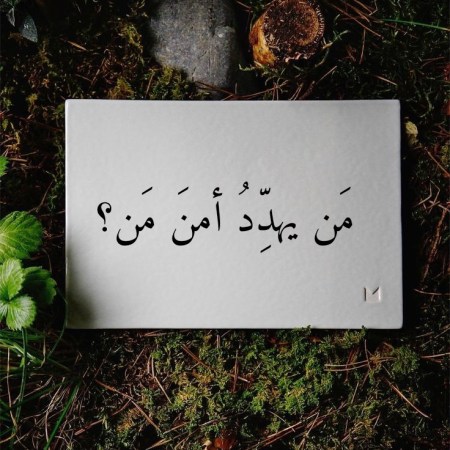 مَن يهدِّدُ أمنَ مَن؟